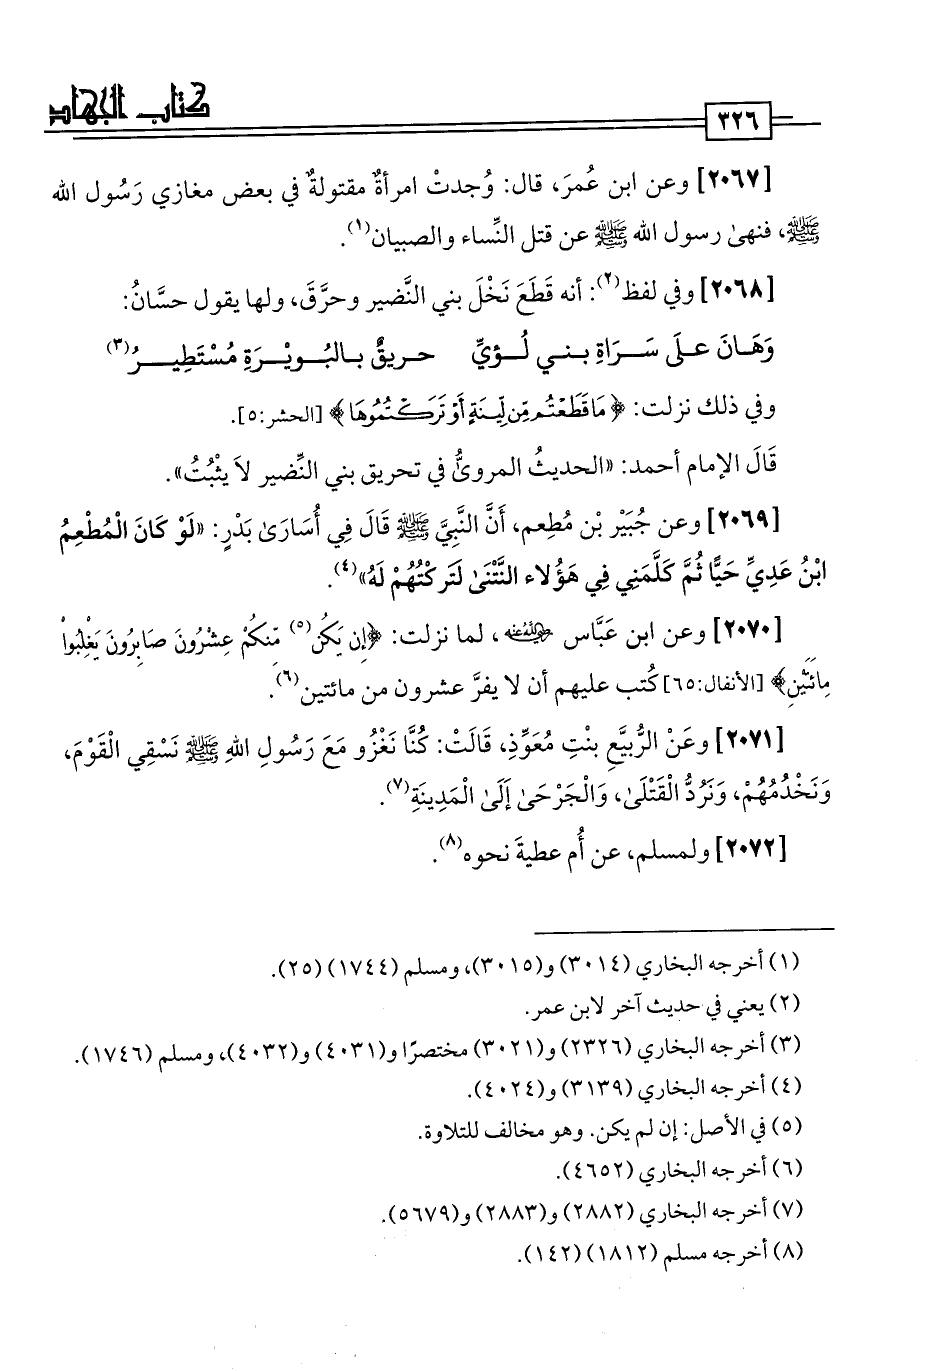 كتاب الجهاد
٣٢٦
[٢٠٦٧] وعن ابن عُمرَ، قال: وُجدتْ امرأةٌ مقتولةٌ في بعض مغازي رَسُول الله
ﷺ، فنهىٰ رسول الله ﷺ عن قتل النِّساء والصبيان(١).
[٢٠٦٨] وفي لفظ(٢): أنه قَطَعَ نَخْلَ بني النَّضير وحرَّقَ، ولها يقول حسَّانُ:
وَهَـانَ علـى سَـرَاةِ بـنـي لُـؤيٍّ حريقٌ بـالبُـوَيْـرَةِ مُسْتَطِيـرُ(٣)
وفي ذلك نزلت: ﴿مَا قَطَعْتُم مِّن لِّينَةٍ أَوْ تَرَكْتُمُوهَا﴾ [الحشر:٥].
قَالَ الإمام أحمد: «الحديثُ المرويُّ في تحريق بني النِّضير لاَ يثْبُتُ».
[٢٠٦٩] وعن جُبَيْر بْن مُطعِم، أَنَّ النَّبِيَّ ﷺ قَالَ فِي أُسَارَىٰ بَدْرٍ: «لَوْ كَانَ الْمُطْعِمُ
ابْنُ عَدِيٍّ حَيًّا ثُمَّ كَلَّمَنِي فِي هَؤُلاء النَّتْنَىٰ لَتَرَكْتُهُمْ لَهُ»(٤).
[٢٠٧٠] وعن ابن عَبَّاس رضي الله عنه، لما نزلت: ﴿إِن يَكُن(٥) مِّنكُمْ عِشْرُونَ صَابِرُونَ يَغْلِبُواْ
مِائَتَيْنِ﴾ [الأنفال:٦٥] كُتب عليهم أن لا يفرَّ عشرون من مائتين(٦).
[٢٠٧١] وعَنْ الرُّبيَّعِ بِنْتِ مُعَوِّذٍ، قَالَتْ: كُنَّا نَغْزُو مَعَ رَسُولِ اللهِ ﷺ نَسْقِي الْقَوْمَ،
وَنَخْدُمُهُمْ، وَنَرُدُّ الْقَتْلَىٰ، وَالْجَرْحَىٰ إَلَىٰ الْمَدِينَةِ(٧).
[٢٠٧٢] ولمسلم، عن أُم عطيةَ نحوه(٨).
(١) أخرجه البخاري (٣٠١٤) و(٣٠١٥)، ومسلم (١٧٤٤) (٢٥).
(٢) يعني في حديث آخر لابن عمر.
(٣) أخرجه البخاري (٢٣٢٦) و(٣٠٢١) مختصرًا و(٤٠٣١) و(٤٠٣٢)، ومسلم (١٧٤٦).
(٤) أخرجه البخاري (٣١٣٩) و(٤٠٢٤).
(٥) في الأصل: إن لم يكن. وهو مخالف للتلاوة.
(٦) أخرجه البخاري (٤٦٥٢).
(٧) أخرجه البخاري (٢٨٨٢) و(٢٨٨٣) و(٥٦٧٩).
(٨) أخرجه مسلم (١٨١٢) (١٤٢).